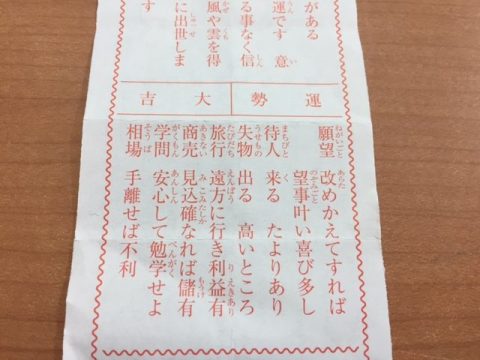 がある
運です 意
る事なく信
風や雲を得
に出世しま
す
運勢
大吉
願望 改めかえてすれば
望事叶い喜び多し
待人 来る たよりあり
失物 出る 高いところ
旅行 遠方に行き利益有
商売 見込確なれば儲有
学問 安心して勉学せよ
相場 手離せば不利